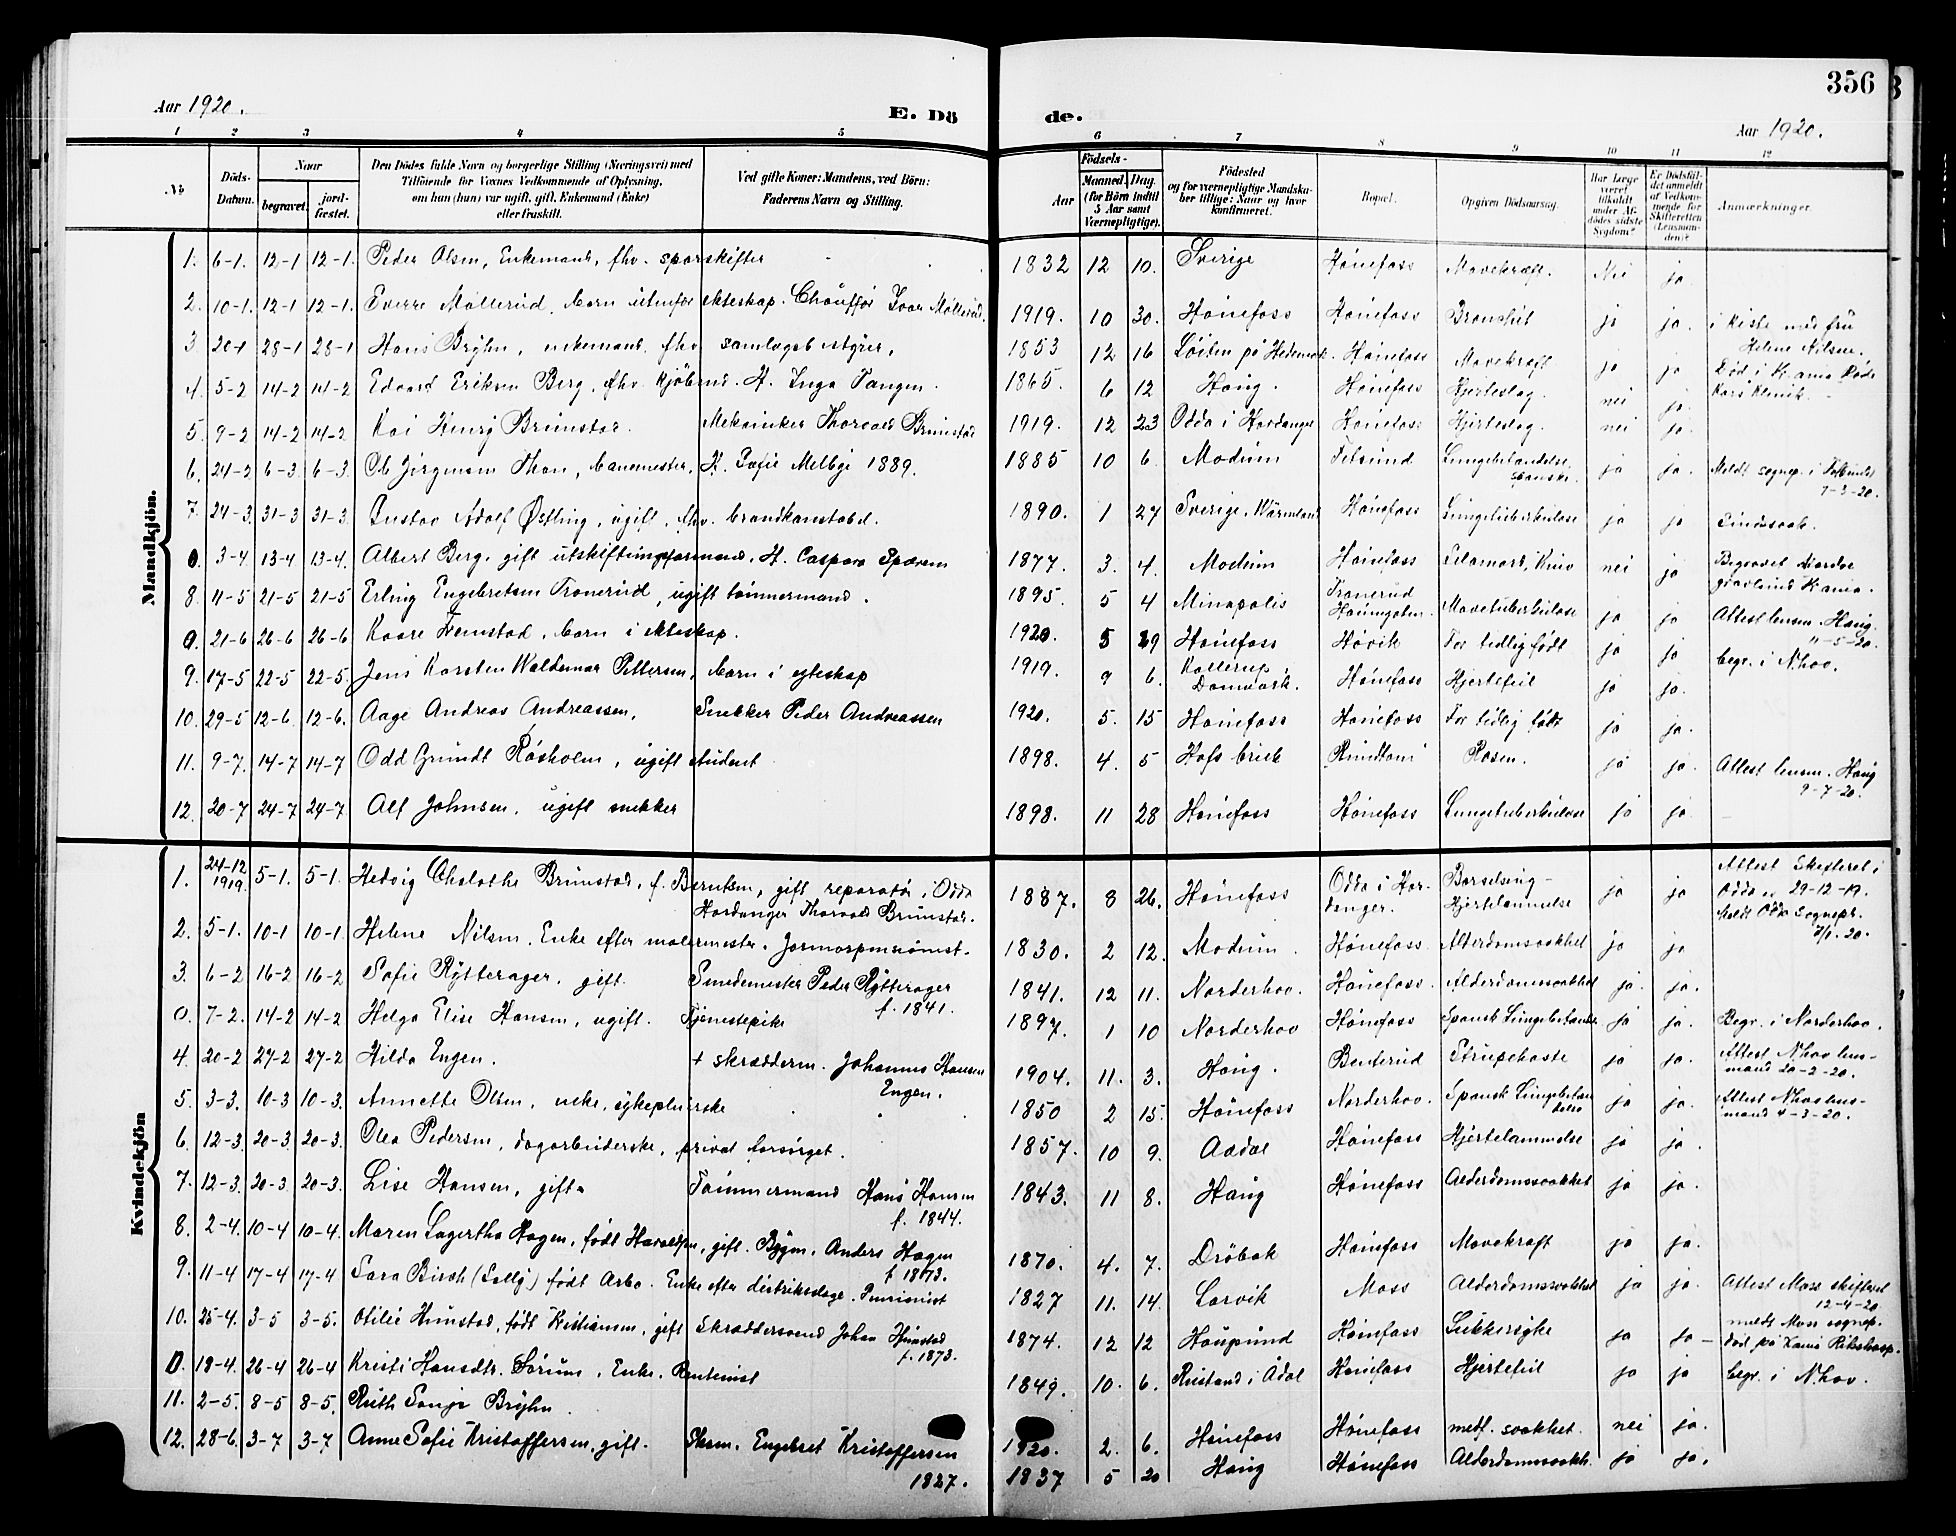 356
Aar 1920.
E. Dö de.
Aar 1920.
1 2 3 4 5 6 7 8 9 10 11 12
No
Döds-Datum.
Naar
begravet.
jord-fæstet.
Den Dödes fulde Navn og borgerlige Stilling (Næringsvei) med
Tilföiende for Voxnes Vedkommende af Oplysning,
om han (hun) var ugift, gift, Enkemand (Enke)
eller fraskilt.
Ved gifte Koner: Mandens, ved Börn:
Faderens Navn og Stilling.
Födsels-
Aar
Maaned.
Dag.
(for Börn indtil
5 Aar samt
Værnepligtige).
Födested
og for værnepligtige Mandska-
ber tillige: Naar og hvor
konfirmeret.
Bopæl.
Opgiven Dödsaarsag.
Har Læge
været
tilkaldt
under Af-
dödes sidste
Sygdom?
Er Dödsfal-
det anmeldt
af Vedkom-
mende for
Skifteretten
(Lensman-
den)?
Anmærkninger.
Mandkjön.
1. 6-1. 12-1 12-1. Peder Olsen, Enkemand, fhv. sporskifter 1832 12 10. Sverige Hönefoss Mavekræft. Nei ja
2. 10-1. 12-1 12-1. Sverre Møllerud, barn utenfor ekteskap. Chauffør Ivar Møllerud. 1919. 10 30. Hönefoss Hönefoss Bronchit ja ja.
3. 20-1 28-1 28-1 Hans Bryhn, enkemand, fhv. samlagsbestyrer, 1853 12 16 Löiten på Hedemark. Hönefoss Mavekræft ja ja i kiste med fru
Helene Nilsen.
4. 5-2 14-2 14-2 Edvard Eriksen Berg, fhv. kjöbmd. H. Inga Tangen. 1865. 6 12 Haug. Hönefoss Hjerteslag. nei ja. Död i Kr.ania Röde
Kors Klinik.
5. 9-2 14-2 14-2 Kai Henry Brunstad. Mekaniker Thorvald Brunstad 1919. 12 23 Odda i Hardanger Hönefoss Hjerteslag. nei ja.
6. 24-2 6-3. 6-3. Ole Jörgensen Thon, banemester, H. Sofie Melbye 1889. 1885 10 6. Modum Tilsund Lungebetendelse,
spansk. ja ja. Meldt sognep. i
7-3-20.
7. 24-3. 31-3 31-3. Gustav Adolf Østling, ugift, fhv. brandkonstabel. 1890. 1 27 Sverige, Wärmland Hönefoss Lungetuberkulose ja ja Sindssvak.
0. 3-4 13-4 13-4. Albert Berg, gift utskiftningsformand. H. Caspara Sporem 1877. 3. 4. Modum Hönefoss nei ja Begravet Nordre
gravlund Kr.ania.
8. 11-5 21-5 21-5 Erling Engebretsen Tronerud, ugift tömmermand. 1895. 5 4 Minapolis Tronerud
Haugsplan. Mavetuberkulose ja ja Attest lensm. Haug.
11-5-20.
0. 21-6 26-6 26-6. Kaare Femstad, barn i ekteskap. 1920. 5 29 Hönefoss Hövik For tidlig född ja ja begr. i N.hov.
9. 17-5 22-5 22-5. Jens Karsten Waldemar Pettersen, barn i egteskap 1919. 9 6. Kallerup i
Danmark. Hönefoss Hjertefeil ja ja.
10. 29-5 12-6. 12-6. Aage Andreas Andreassen, Snekker Peder Andreassen 1920. 5. 15 Hönefoss Hönefoss For tidlig född ja ja.
11. 9-7. 14-7 14-7 Odd Grundt Røsholm, ugift student 1898. 4. 5 Hofs bruk Rundtom Rosen. ja ja. Attest lensm. Haug
9-7-20.
12. 20-7 24-7 24-7 Alf Johnsen, ugift snekker 1898. 11 28 Hönefoss Hönefoss Lungetuberkulose ja ja.
Kvindekjön
1. 24-12
1919. 5-1. 5-1. Hedvig Charlotte Brunstad, f. Berntsen, gift reparatör i Odda
Hardanger Thorvald Brunstad. 1887. 8 26. Hönefoss Odda i Har-
danger. Barselseng-
Hjertelammelse ja ja Attest Skifteret i
Odda 29-12-19.
Meldt Odda Sognepr.
7/1. 20.
2. 5-1. 10-1 10-1. Helene Nilsen, Enke efter malermester. 1830. 2 12. Modum. Hönefoss. Alderdomssvakhet ja ja
3. 6-2 16-2 16-2 Sofie Rytterager, gift. Smedemester Peder Rytterager
f. 1841. 1841. 12 11. Norderhov. Hönefoss. Alderdomssvakhet ja. ja.
0. 7-2. 14-2 14-2 Helga Elise Hansen, ugift. Tjenestepike 1897. 1 10 Norderhov Hönefoss Spansk Lungebetendelse ja ja. Begr. i Norderhov.
4. 20-2 27-2 27-2 Hilda Engen. + skrædderm. Johannes Hansen
Engen. 1904. 11. 3. Haug. Benterud Strupehoste ja ja. Attest N.hov lens-
mand 20-2-20.
5. 3-3. 10-3 10-3. Annette Olsen, enke, sykepleierske 1850 2 15. Hönefoss Norderhov. Spansk Lungebeten
delse ja ja. Attest N.hov lens-
mand 4-3-20.
6. 12-3. 20-3. 20-3. Olea Pedersen, dagarbeiderske, privat forsörget. 1857. 10 9. Aadal Hönefoss Hjertelammelse ja ja.
7. 12-3. 20-3 20-3. Lise Hansen, gift. Tömmermand Hans Hansen
f. 1844. 1843. 11 8. Haug Hönefoss Alderdomssvakhet ja ja.
8. 2-4. 10-4 10-4. Maren Lagertha Hagen, född Haraldsen, gift. Bygm. Anders Hagen
f 1873. 1870. 4. 7. Dröbak Hönefoss Mavekræft ja ja.
9. 11-4 17-4 17-4 Sara Birch (Sally) född Arbo. Enke efter distriktslæge. Pensionist 1827 11. 14. Larvik Moss Alderdomssvakhet ja ja. Attest Moss skifteret
12-4-20
meldt Moss sognep.
10. 25-4. 3-5 3-5. Otilie Hunstad, född Kristiansen, gift Skræddersvend Johan Hunstad
f. 1873. 1874. 12 12 Haugsund Hönefoss Sukkersyke ja ja – död på Kr.ania Rikshosp.
0. 18-4. 26-4 26-4 Kristi Hansdtr. Sörum, Enke, Rentenist 1849. 10. 6. i Ådal Hönefoss Hjertefeil ja ja begr. i N.hov.
11. 2-5. 8-5 8-5. Ruth Sonja Bryhn. 1920. 2. 6. Hönefoss Hönefoss medf. svakhet. nei ja.
12. 28-6. 3-7 3-7 Anne Sofie Kristoffersen, gift. Engebret Kristoffersen
1827. 1837 5 20 Haug Hönefoss Alderdomssvakh. ja ja.